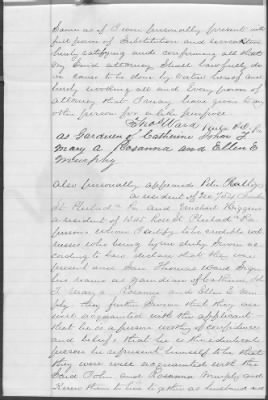 same as if I were personally present with
full power of Substitution and revocation
hereby ratifying and confirming all that
my Said attorney Shall lawfully do
or cause to be done by virtue hereof and
hereby revoking all and Every power of
attorney that I may have given to any
other person for a like purpose.
Thos Ward
as Gardien of Catherine John T
Mary a Rosanna and Ellen E
Murphy
Also personally appeared
a resident of
St Philada Pa and Michael Higgins
a resident of St Philada Pa
persons whom I certify to be credible wit
nesses who being by me duly Sworn ac
cording to law declare that they were
present and Saw Thomas Ward Sign
his name as guardian of Catherine John
T Mary a Rosanna and Ellen E Mur
phy they further Swear that they are
well acquainted with the applicant
that he is a person worthy of confidence
and belief that he is the identical
person he represents himself to be that
they were well acquainted with the
Said John and Rosanna Murphy and
Knew them to live together as husband and